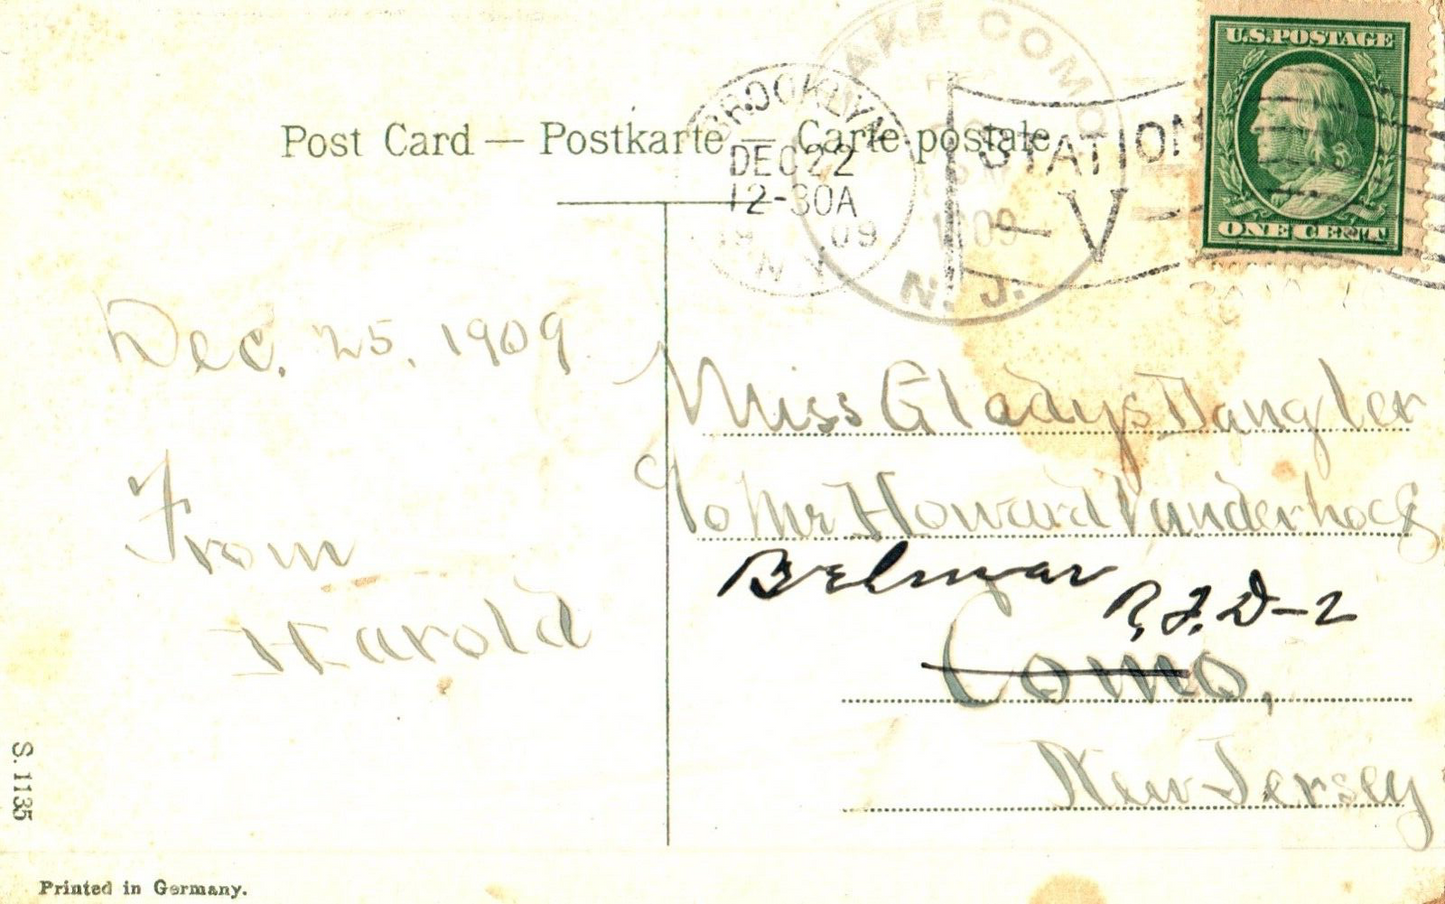 U.S. POSTAGE
ONE CENT
LAKE COMO
1909
N. J.
BROOKLYN
DEC 22
12-30A
1909
N.Y.
STATION
V
Post Card — Postkarte — Carte postale
Dec. 25, 1909
From
Harold
Miss Gladys Dangler
c/o Mr Howard Vanderhoef
Belmar
R.F.D-2
Como,
New Jersey
S. 1135
Printed in Germany.